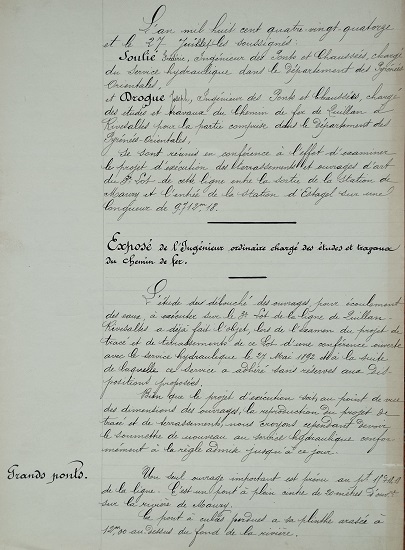 L'an mil huit cent quatre vingt quatorze
et le 27 Juillet les soussignés:
Soulié, Ingénieur des Ponts et Chaussées, chargé
du Service hydraulique dans le Département des Pyrénées
Orientales.
et Drogue, Ingénieur des Ponts et Chaussées, chargé
des études et travaux du Chemin de fer de Quillan à
Rivesaltes pour la partie comprise dans le Département des
Pyrénées-Orientales,
Se sont réunis en conférence à l'effet d'examiner
le projet d'exécution des terrassements et ouvrages d'art
du 3e Lot de cette ligne entre la sortie de la Station de
Maury et l'entrée de la Station d'Estagel sur une
longueur de 9712m 18.
Exposé de l'Ingénieur ordinaire chargé des études et travaux
du chemin de fer.
L'étude des débouchés des ouvrages, pour écoulement
des eaux, à exécuter sur le 3e Lot de la ligne de Quillan
Rivesaltes a déjà fait l'objet, lors de l'examen du projet de
tracé et de terrassements de ce Lot d'une conférence ouverte
avec le service hydraulique le 27 Mai 1892 et à la suite
de laquelle ce Service a adhéré sans réserves aux dis-
positions proposées.
Bien que le projet d'exécution soit, au point de vue
des dimensions des ouvrages, la reproduction du projet de
tracé et de terrassements, nous croyons cependant devoir
le soumettre de nouveau au service hydraulique confor-
mément à la règle admise jusqu'à ce jour.
Grands ponts.
Un seul ouvrage important est prévu au
de la ligne. C'est un pont à plein cintre de 20 mètres d'ouvre
sur la rivière de Maury.
Ce pont à culées perdues a sa plinthe arasée à
12m,00 au dessus du fond de la rivière.